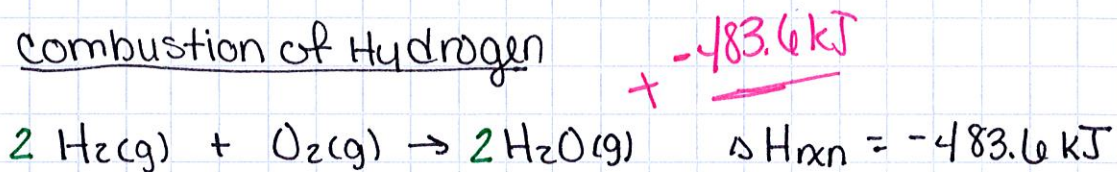 Combustion of Hydrogen
+ -483.6 kJ
2 H₂(g) + O₂(g) → 2 H₂O(g) ΔHrxn = -483.6 kJ